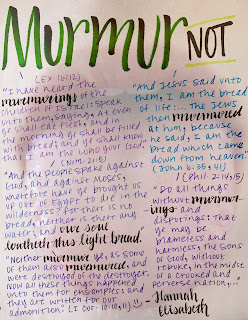 Murmur NOT
(EX. 16:12)
"I have heard the
murmurings of the
children of Israel: speak
unto them, saying, At even
ye shall eat flesh, and in
the morning ye shall be filled
with bread; and ye shall know
that I am the LORD your God."
(NUM. 21:5)
"And the people spake against
God, and against Moses,
wherefore have ye brought us
up out of Egypt to die in the
wilderness? for there is no
bread, neither is there any
water; and our soul
loatheth this light bread."
"Neither murmur ye, as some
of them also murmured, and
were destroyed of the destroyer.
Now all these things happened
unto them for ensamples: and
they are written for our
admonition." (I Cor. 10:10,11)
"And Jesus said unto
them, I am the bread
of life:... The Jews
then murmured
at him, because
he said, I am the
bread which came
down from heaven."
(John 6:35, 41)
(Phil 2:14,15)
"Do all things
without murmur-
ings and
disputings: that
ye may be
blameless and
harmless, the sons
of God, without
rebuke, in the midst
of a crooked and
perverse nation,..."
- Hannah
Elisabeth